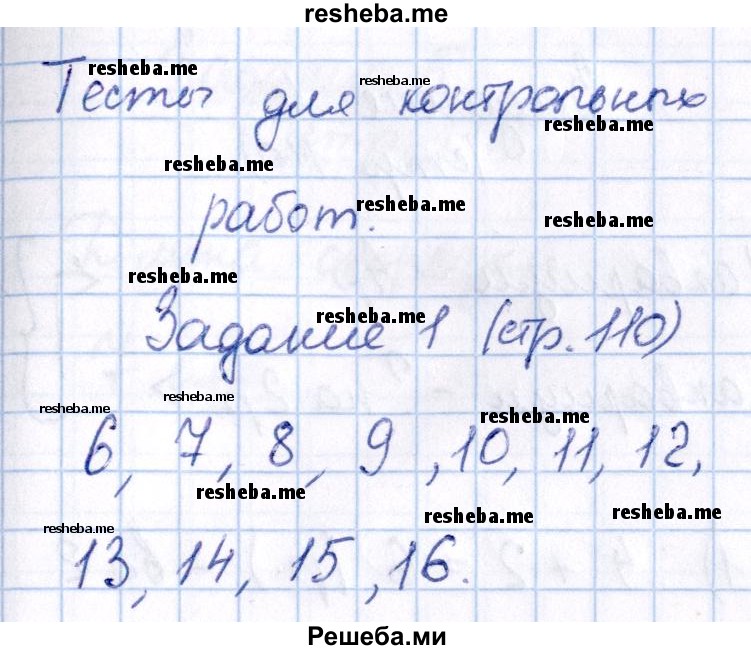 resheba.me
resheba.me
resheba.me
Тесты для контрольных
resheba.me
resheba.me
работ.
resheba.me
resheba.me
resheba.me
resheba.me
Задание 1 (стр. 110)
resheba.me
resheba.me
resheba.me
6, 7, 8, 9, 10, 11, 12,
resheba.me
resheba.me
resheba.me
resheba.me
13, 14, 15, 16.
Решеба.ми